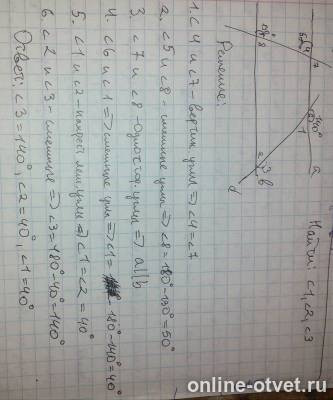 Найти: ∠1, ∠2, ∠3
52° 4
7
140°
1
a
8
3
2
b
d
Решение:
1. ∠4 и ∠7 - вертик. углы ⇒ ∠4 = ∠7
2. ∠5 и ∠8 - смежные углы ⇒ ∠8 = 180° - 130° = 50°
3. ∠7 и ∠8 - углы ⇒ a||b
4. ∠6 и ∠1 ⇒ смежные углы ⇒ ∠1 = 180° - 140° = 40°
5. ∠1 и ∠2 - углы ⇒ ∠1 = ∠2 = 40°
6. ∠2 и ∠3 - смежные ⇒ ∠3 = 180° - 40° = 140°
Ответ: ∠3 = 140°, ∠2 = 40°, ∠1 = 40°
online-otvet.ru